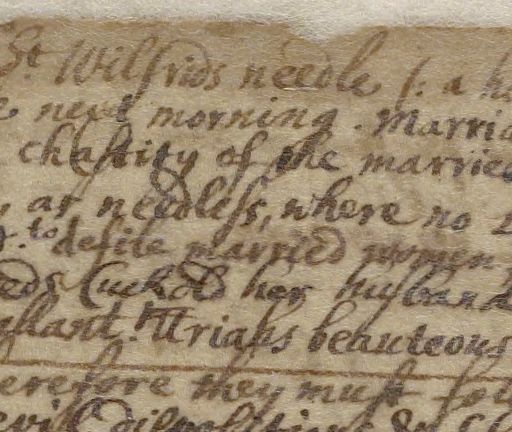 St Wilfrids needle (: a
next morning. Marri
chastity of the married
ar needless, where no
to defile married women
Cuckold her husband
gallant. Uriahs beauteous
therefore they must